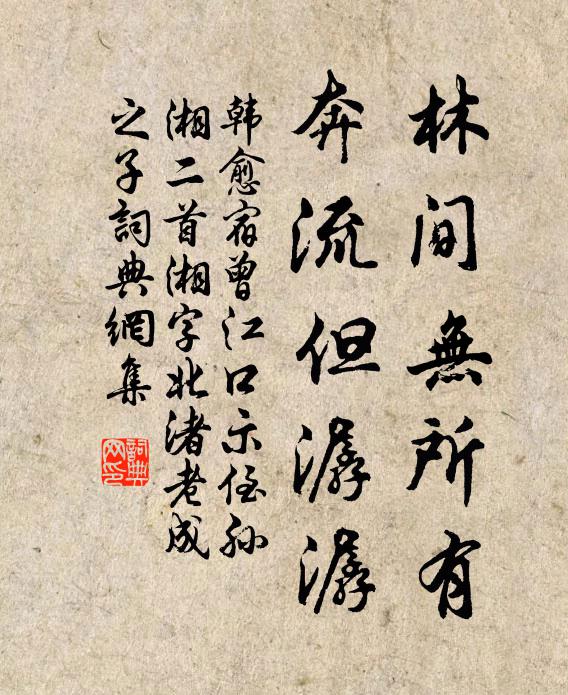 林間無所有
奔流但潺潺
韩愈宿曾江口示侄孙
湘二首湘字北渚老成
之子詞典網集
詞典
网印